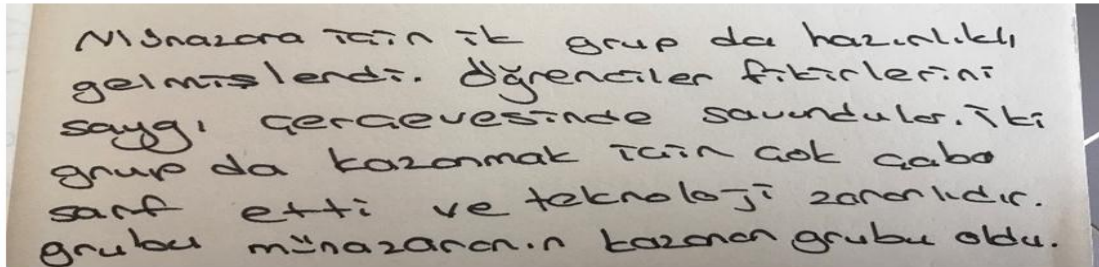 Münazara için ik grup da hazırlıklı
gelmişlerdi. Öğrenciler fikirlerini
saygı çerçevesinde savundular. İki
grup da kazanmak için çok çaba
sarf etti ve teknoloji zararlıdır.
grubu münazaranın kazanan grubu oldu.